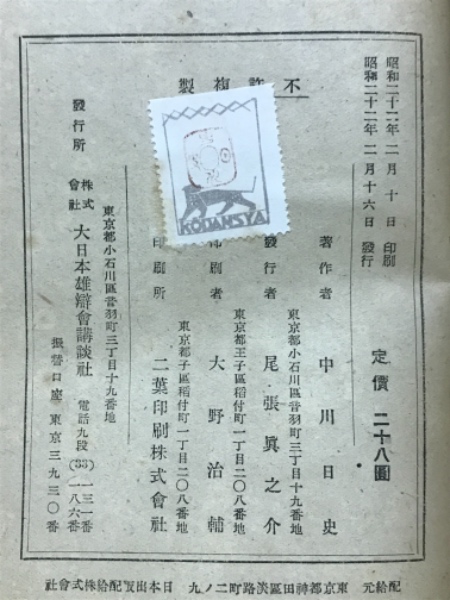 不許複製
昭和二十二年 二月 十 日 印刷
昭和二十二年 二月十六日 發行
定價 二十八圓
著作者 中川日史
東京都小石川區音羽町三丁目十九番地
發行者 尾張眞之介
東京都王子區稻付町一丁目二〇八番地
印刷者 大野治輔
東京都王子區稻付町一丁目二〇八番地
印刷所 二葉印刷株式會社
東京都小石川區音羽町三丁目十九番地
發行所 株式會社 大日本雄辯會講談社
電話九段(33) 一三一番 一八六番
振替口座 東京三九三〇番
KODANSYA
配給元 東京都神田區淡路町二ノ九 日本出版配給株式會社